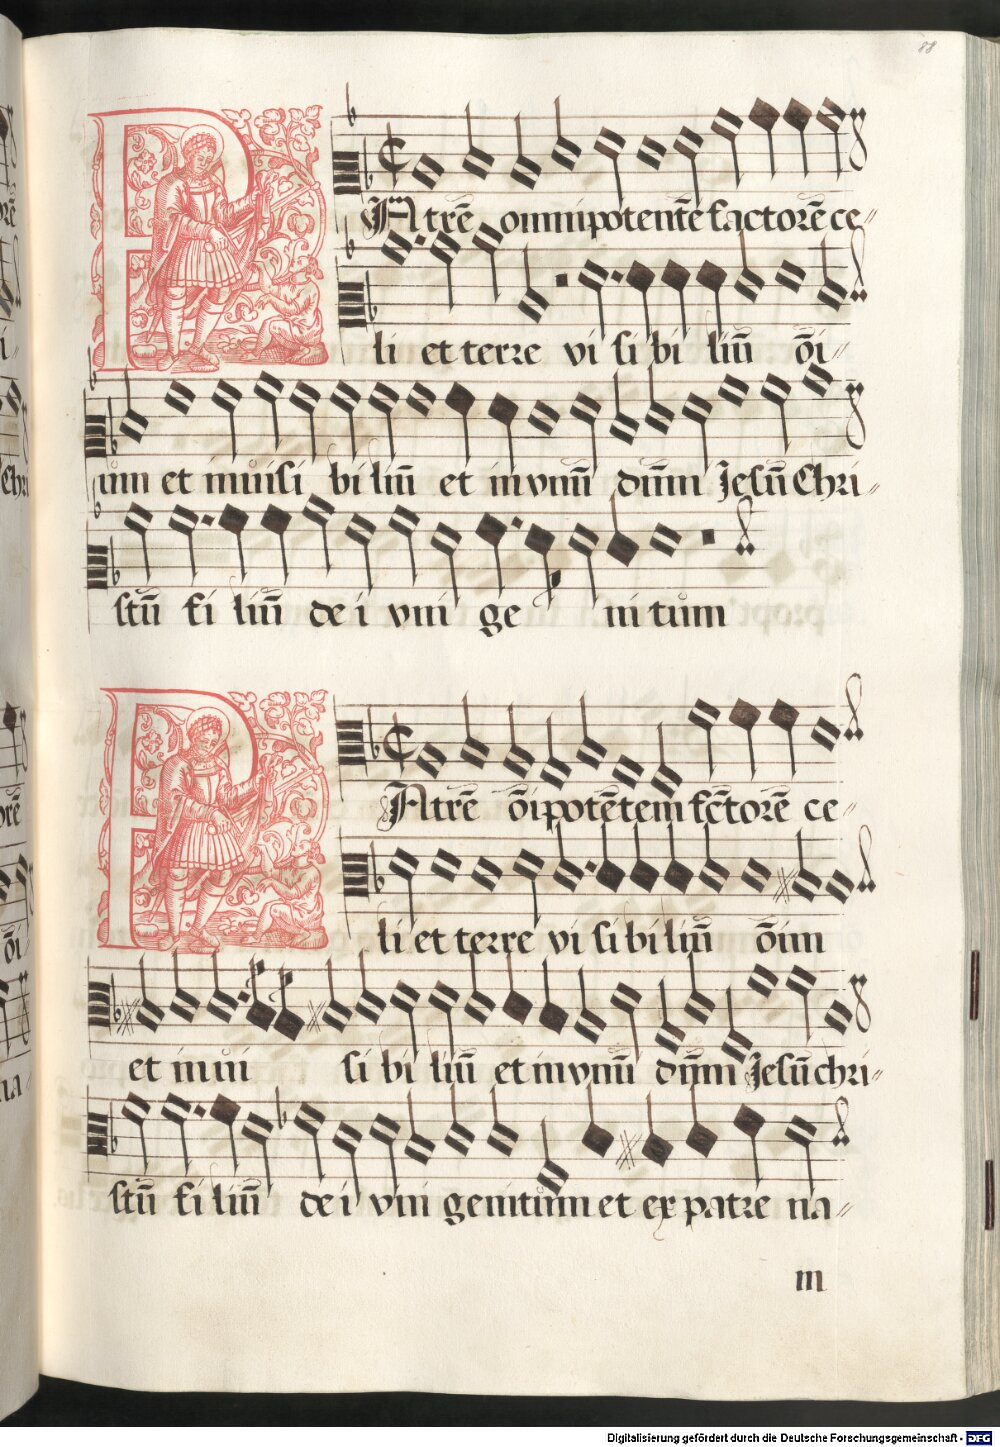 88
PAtrē omnipotentē factorē ce〃
li et terre vi si bi liū ōi〃
um et inuisi bi liū et in vnū dn̄m Jesū Chri〃
stū fi liū de i vni ge nitum
PAtrē ōipotētem fctorē ce〃
li et terre vi si bi liū ōim
et inui si bi liū et in vnū dn̄m Jesū chri〃
stū fi liū de i vni genitum et ex patre na〃
m
Digitalisierung gefördert durch die Deutsche Forschungsgemeinschaft - DFG